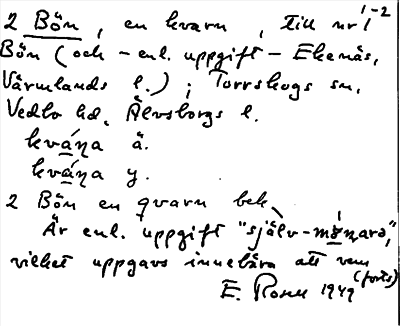 2 Bön, en kvarn, till nr 1-2
Bön (och - enl. uppgift - Ekenäs,
Värmlands l.); Torrskogs sn,
Vedbo hd, Älvsborgs l.
kvána ä.
kvána y.
2 Bön en qvarn bek.
Är enl. uppgift "själv-
vilket uppgavs innebära att vem
(forts)
E. Rosell 1949